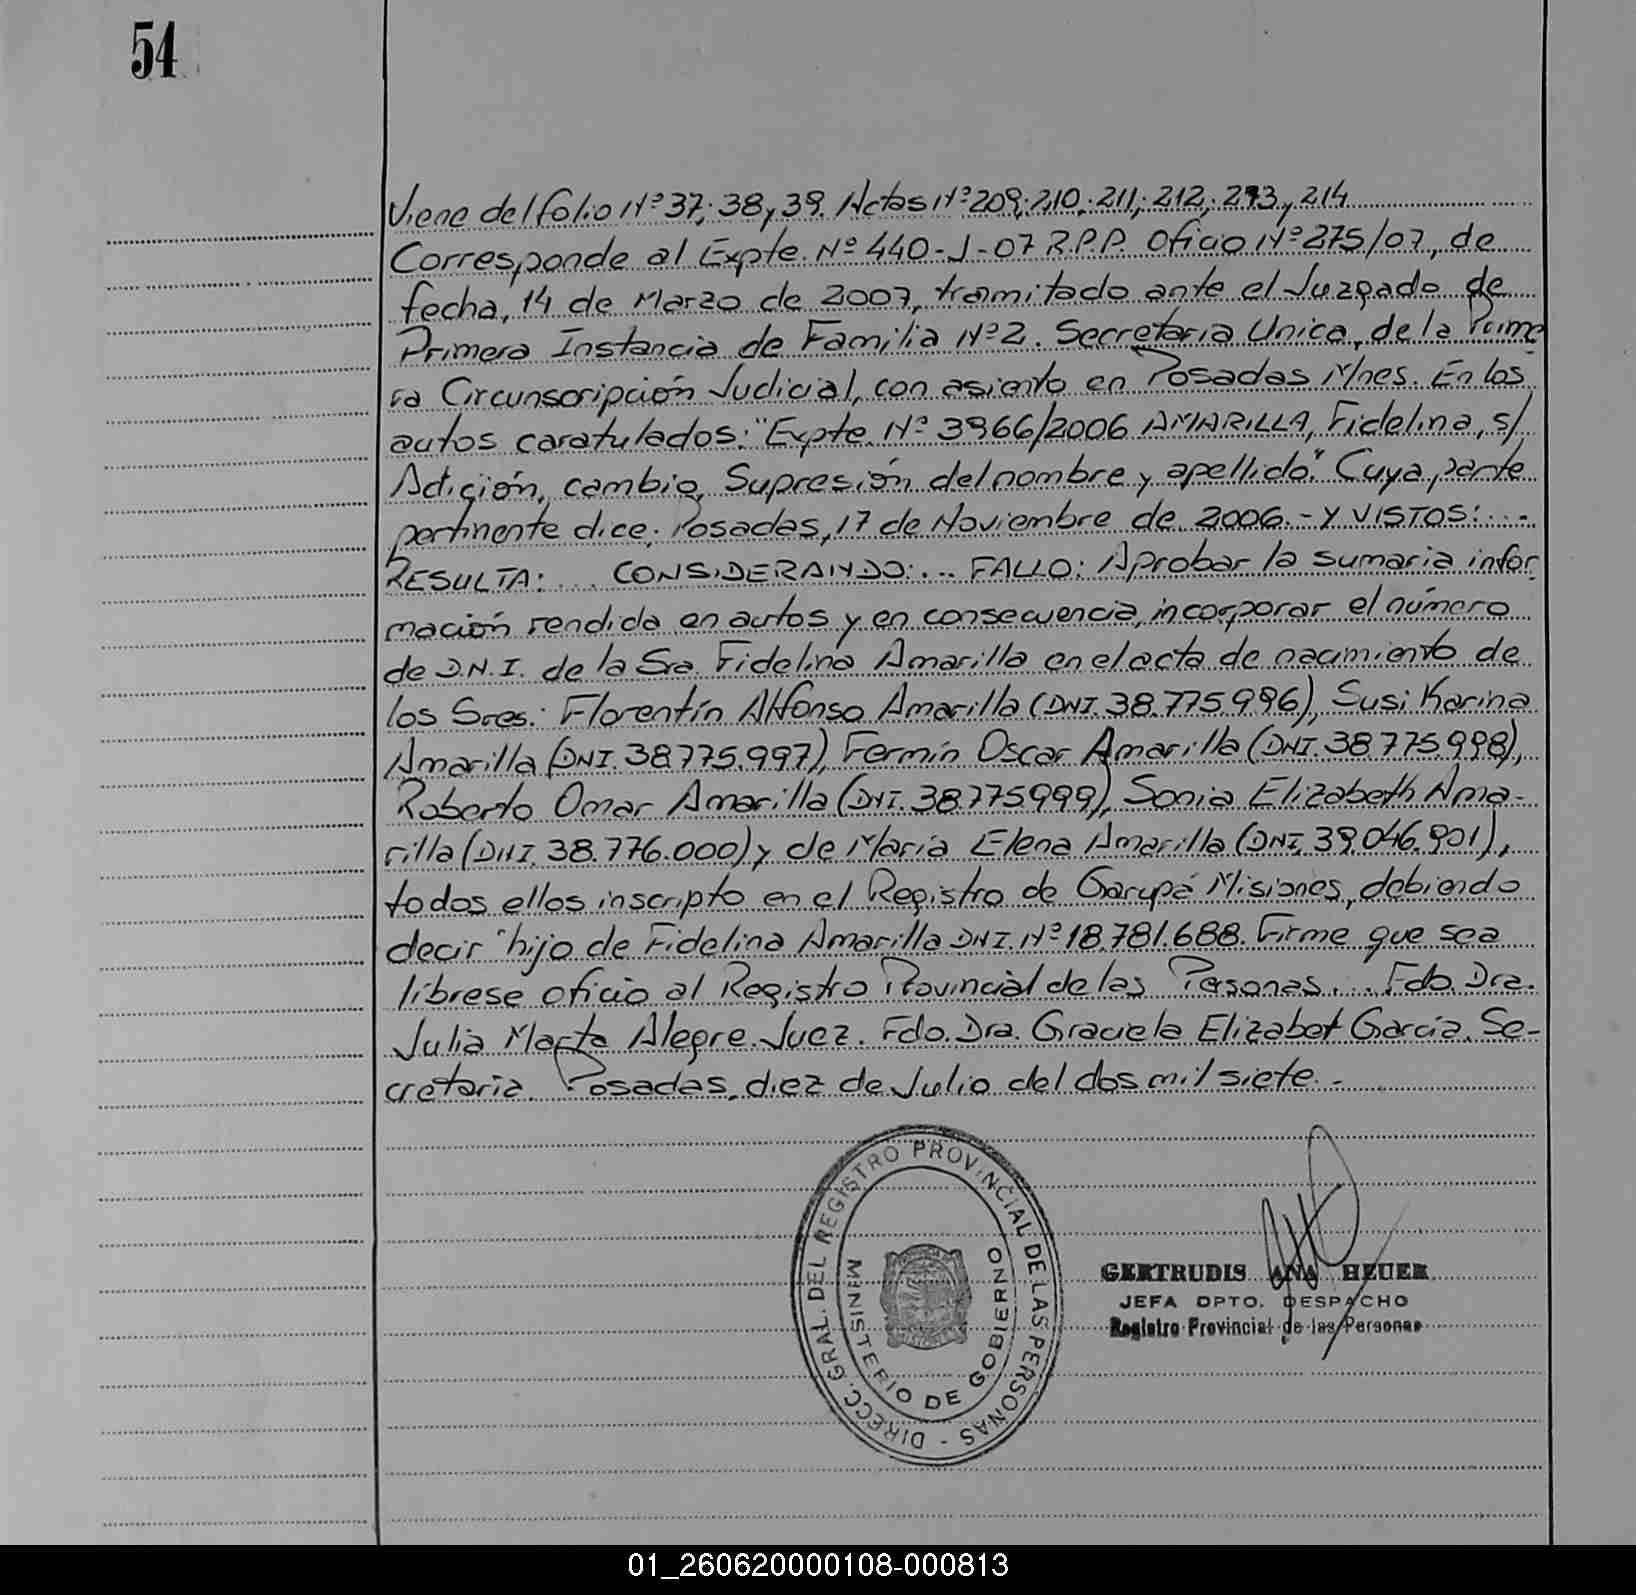 54
Viene del folio Nº 37; 38 y 39. Actas Nº 209; 210; 211; 212; 213 y 214
Corresponde al Expte. Nº 440-J-07 R.P.P. Oficio Nº 275/07, de
fecha, 14 de Marzo de 2007, tramitado ante el Juzgado de
Primera Instancia de Familia Nº 2. Secretaria Unica, de la Prime
ra Circunscripción Judicial, con asiento en Posadas Mnes. En los
autos caratulados: "Expte. Nº 3966/2006 AMARILLA, Fidelina, s/
Adición, cambio, Supresión del nombre y apellido." Cuya parte
pertinente dice: Posadas, 17 de Noviembre de 2006.- Y VISTOS: ...
RESULTA: ... CONSIDERANDO: ... FALLO: Aprobar la sumaria infor
mación rendida en autos y en consecuencia, incorporar el número
de D.N.I. de la Sra. Fidelina Amarilla en el acta de nacimiento de
los Sres.: Florentín Alfonso Amarilla (DNI. 38.775.996), Susi Karina
Amarilla (DNI. 38.775.997), Fermín Oscar Amarilla (DNI. 38.775.998),
Roberto Omar Amarilla (DNI. 38.775.999), Sonia Elizabeth Ama-
rilla (DNI. 38.776.000) y de María Elena Amarilla (DNI. 39.046.901),
todos ellos inscripto en el Registro de Garupá Misiones, debiendo
decir "hijo de Fidelina Amarilla DNI. Nº 18.781.688. Firme que sea
líbrese oficio al Registro Provincial de las Personas. ... Fdo. Dra.
Julia Marta Alegre. Juez. Fdo. Dra. Graciela Elizabet Garcia. Se-
cretaria. Posadas, diez de Julio del dos mil siete.-
DIRECC. GRAL. DEL REGISTRO PROVINCIAL DE LAS PERSONAS -
MINISTERIO DE GOBIERNO
GERTRUDIS ANA HEUER
JEFA DPTO. DESPACHO
Registro Provincial de las Personas
01_260620000108-000813